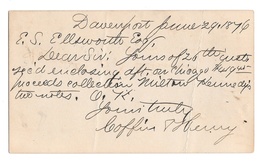 Davenport June 29. 1876
E. S. Ellsworth Esq.
Dear Sir: Yours of 28th inst
rec'd enclosing dft. on Chicago
proceeds collection Milton Kennedy
two notes. O.K.
Yours truly
Coffin & Henry